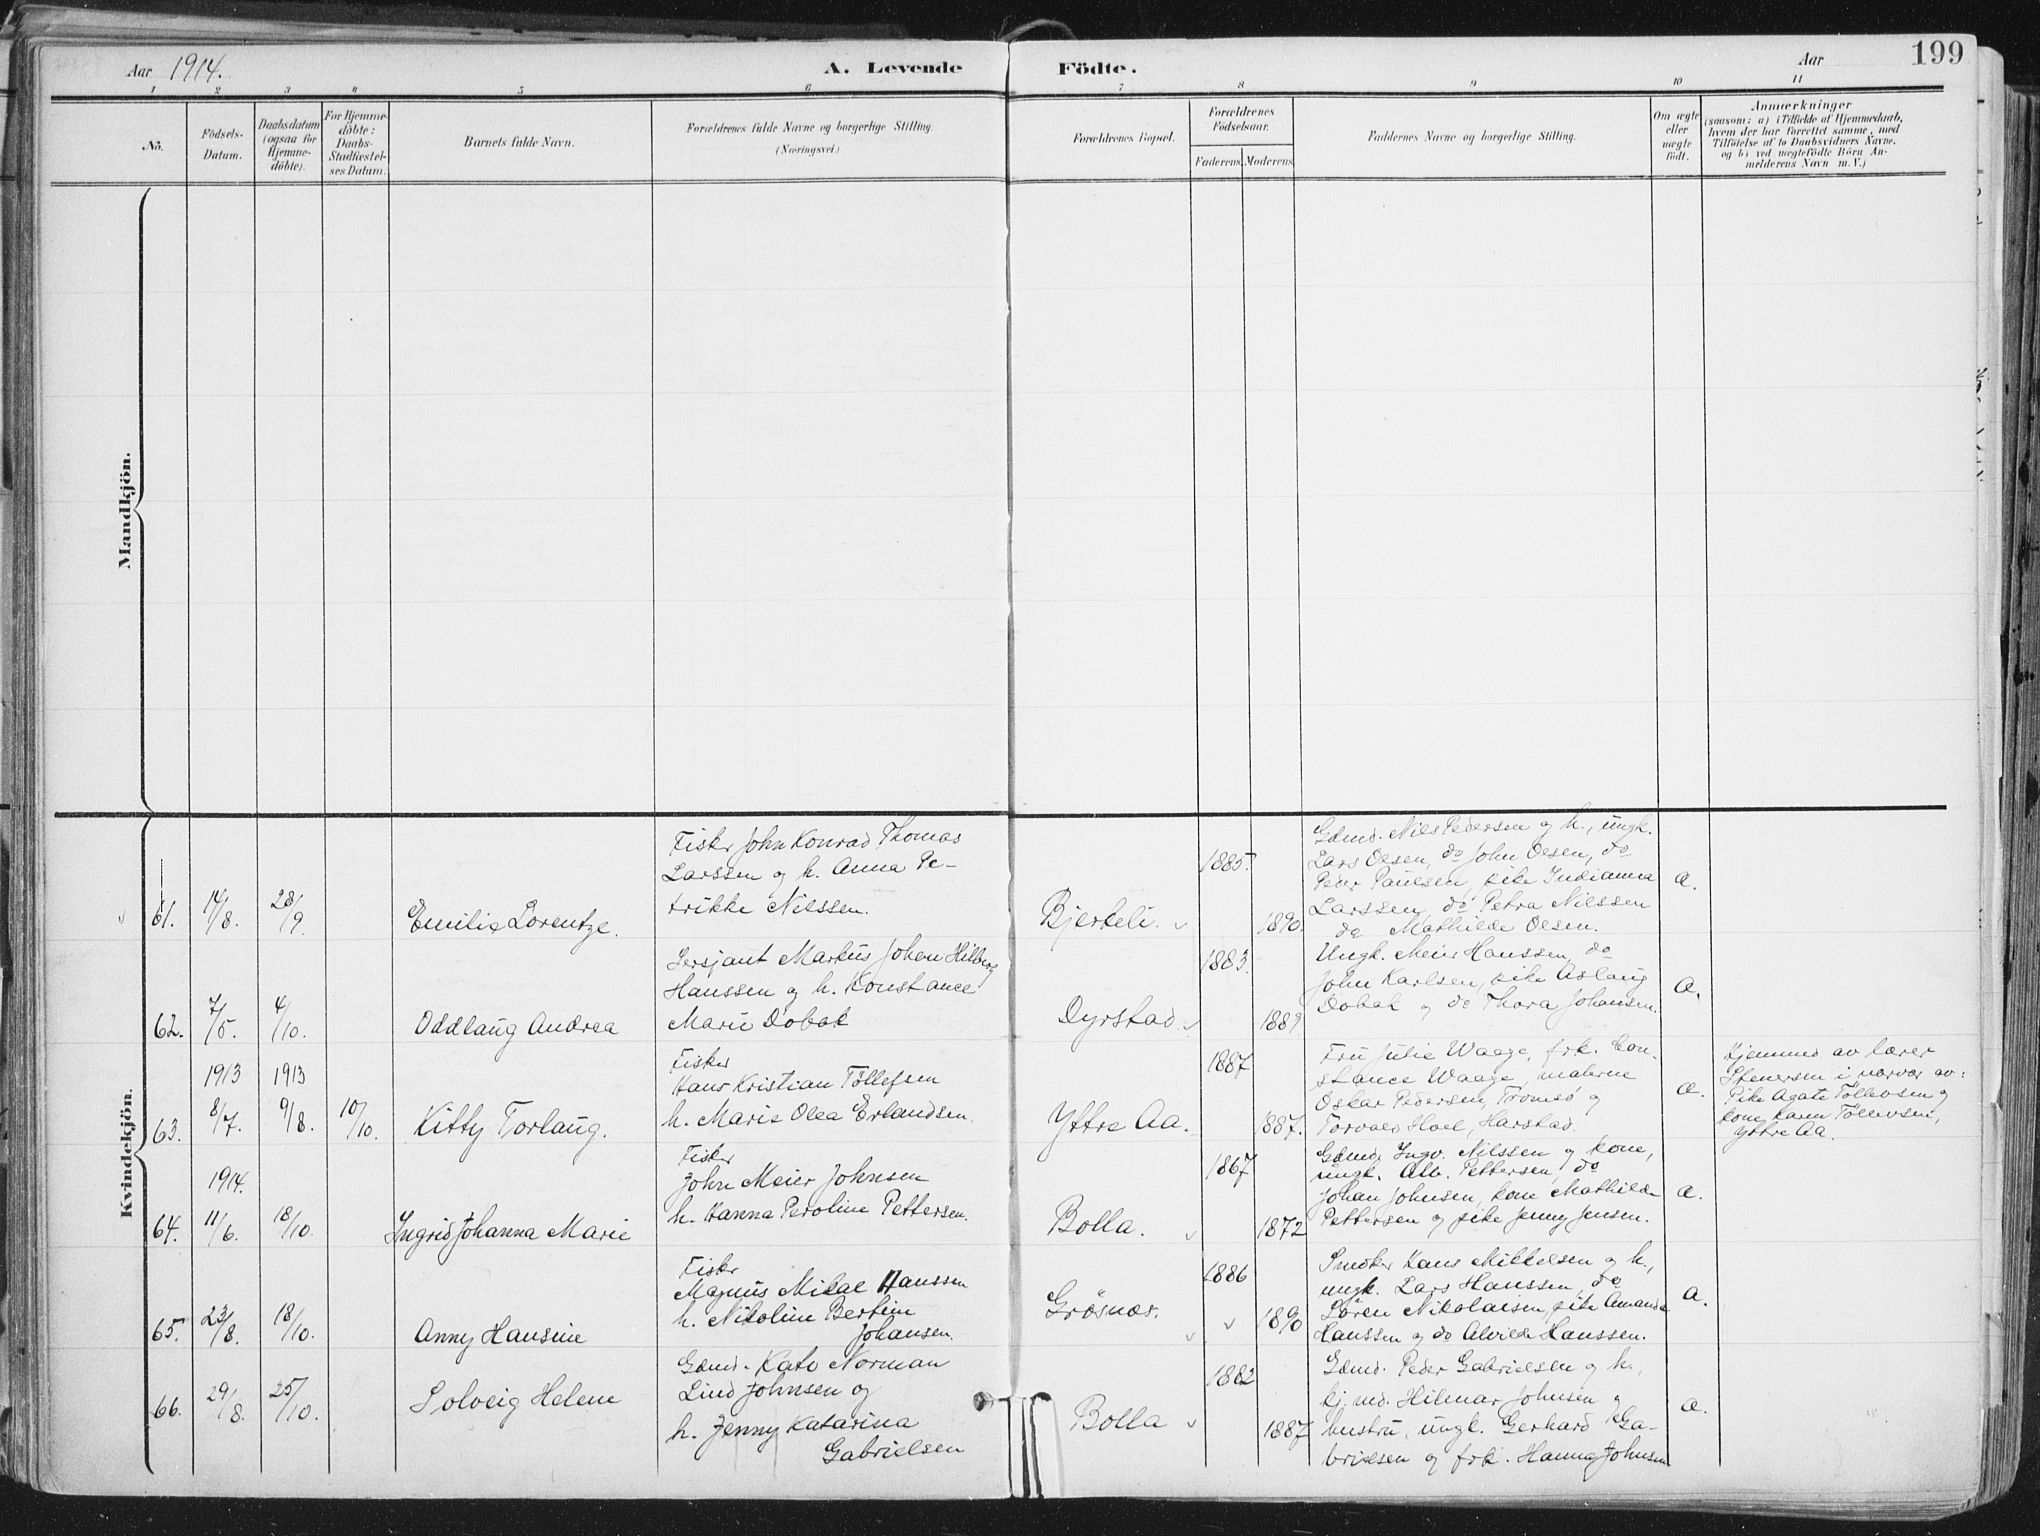 Aar 1914.
A. Levende Födte.
Aar
199
1 2 3 4 5 6 7 8 9 10 11
No.
Födsels-
Datum.
Daabsdatum
(ogsaa for
Hjemme-
döbte).
For Hjemme-
döbte:
Daabs-
Stadfæstel-
ses Datum.
Barnets fulde Navn.
Forældrenes fulde Navne og borgerlige Stilling.
(Næringsvei.)
Forældrenes Bopæl.
Forældrenes
Födselsaar.
Faderens.
Moderens.
Faddernes Navne og borgerlige Stilling.
Om ægte
eller
uægte
födt.
Anmærkninger
(saasom: a) i Tilfælde af Hjemmedaab,
hvem der har forrettet samme, med
Tilföielse af to Daabsvidners Navne,
og b) ved uægtefödte Börn An-
melderens Navn m. V.)
Mandkjön.
Kvindekjön.
61.
14/8.
20/9.
Emilie Lorentze.
Fisker John Konrad Thomas
Larssen og h. Anna Pe-
trikke Nilssen.
Bjerkeli.
1885.
1890.
Gdmd. Nils Pedersen og h., ungk.
Lars Olsen, do John Olsen, do
Peder Paulsen, pike Indianna
Larssen, do Petra Nilssen
do Mathilde Olsen.
a.
62.
7/5.
4/10.
Oddlaug Andrea
Sersjant Markus Johan Hilberg
Hanssen og h. Konstance
Marie Dobak
Dyrstad.
1883.
1889
Ungk. Meier Hanssen, do
John Karlsen, pike Aslaug
Dobak og do Thora Johansen.
a.
63.
1913
8/7.
1913
9/8.
10/10.
Kitty Torlaug.
Fisker
Hans Kristian Töllefsen
h. Marie Olea Erlandsen.
Yttre Aa.
1887
1887.
Fru Julie Waage, frk. Con-
stance Waage, malerne
Oskar Pedersen, Tromsø og
Torvald Hoel, Harstad.
a.
Hjemmed. av lærer
Stenersen i nærvær av:
Pike Agate Töllevsen og
kone Karen Töllevsen,
Yttre Aa.
64.
1914.
11/6.
18/10.
Ingrid Johanna Marie
Fisker
John Meier Johnsen
h. Hanna Peroline Pettersen.
Bolla.
1867
1872
Gdmd. Ingv. Nilssen og kone,
ungk. Alb. Pettersen, do
Johan Johnsen, kone Mathilde
Pettersen og pike Jenny Jensen.
a.
65.
23/8.
18/10.
Anny Hansine
Fisker
Magnus Mikal Hanssen
h. Nikoline Bertine
Johansen.
Gråsnæs.
1886
1890
Snedker Hans Mikkelsen og h.,
ungk. Lars Hanssen, do
Sören Nikolaisen, pike Amanda
Hanssen og do Alvilde Hanssen.
a.
66.
29/8.
25/10.
Solveig Helene
Gdmd. Kato Norman
Lind Johnsen og
h. Jenny Katarina
Gabrielsen
Bolla
1882
1887
Gdmd. Peder Gabrielsen og h.,
kj.md. Hilmar Johnsen og
hustru, ungk. Gerhard Ga-
brielsen og frk. Hanna Johnsen
a.